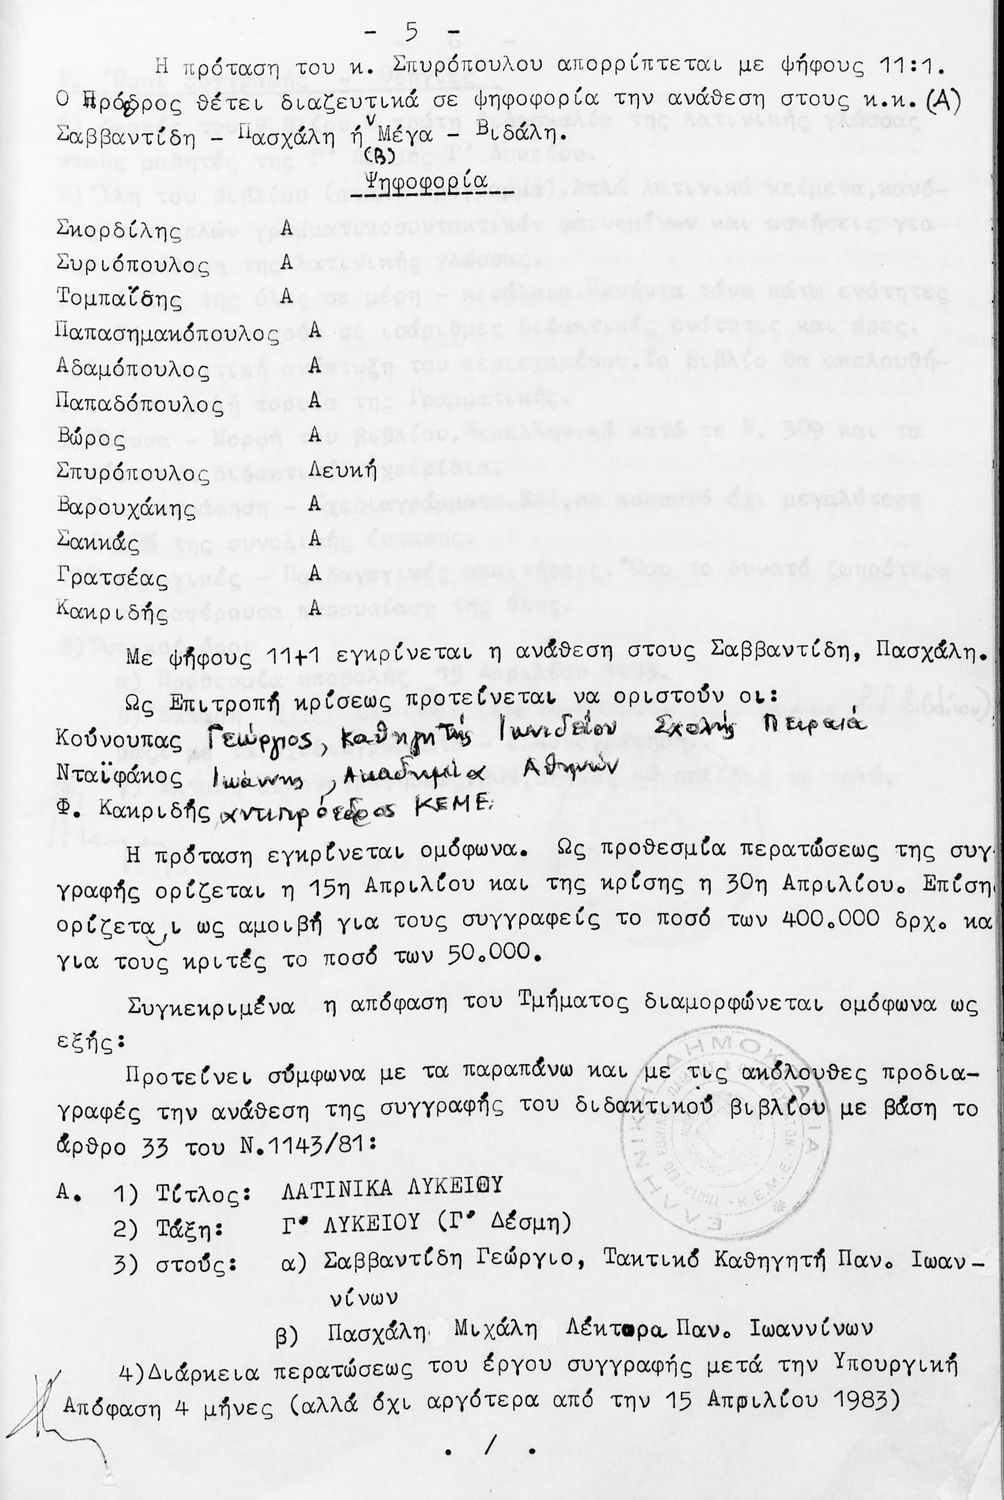 - 5 -
Η πρόταση του κ. Σπυρόπουλου απορρίπτεται με ψήφους 11:1.
Ο Πρόεδρος θέτει διαζευτικά σε ψηφοφορία την ανάθεση στους κ.κ. (Α)
Σαββαντίδη - Πασχάλη ή Μέγα - Βιδάλη.
(Β)
Ψηφοφορία
Σκορδίλης Α
Συριόπουλος Α
Τομπαΐδης Α
Παπασημακόπουλος Α
Αδαμόπουλος Α
Παπαδόπουλος Α
Βώρος Α
Σπυρόπουλος Λευκή
Βαρουχάκης Α
Σακκάς Α
Γρατσέας Α
Κακριδής Α
Με ψήφους 11+1 εγκρίνεται η ανάθεση στους Σαββαντίδη, Πασχάλη.
Ως Επιτροπή κρίσεως προτείνεται να οριστούν οι:
Κούνουπας Γεώργιος, καθηγητής Ιωνιδείου Σχολής Πειραιά
Νταϊφάκος Ιωάννης, Ακαδημία Αθηνών
Φ. Κακριδής αντιπρόεδρος ΚΕΜΕ
Η πρόταση εγκρίνεται ομόφωνα. Ως προθεσμία περατώσεως της συγ
γραφής ορίζεται η 15η Απριλίου και της κρίσης η 30η Απριλίου. Επίση
ορίζεται ως αμοιβή για τους συγγραφείς το ποσό των 400.000 δρχ. κα
για τους κριτές το ποσό των 50.000.
Συγκεκριμένα η απόφαση του Τμήματος διαμορφώνεται ομόφωνα ως
εξής:
Προτείνει σύμφωνα με τα παραπάνω και με τις ακόλουθες προδια-
γραφές την ανάθεση της συγγραφής του διδακτικού βιβλίου με βάση το
άρθρο 33 του Ν.1143/81:
Α. 1) Τίτλος: ΛΑΤΙΝΙΚΑ ΛΥΚΕΙΟΥ
2) Τάξη: Γ' ΛΥΚΕΙΟΥ (Γ' Δέσμη)
3) στούς: α) Σαββαντίδη Γεώργιο, Τακτικό Καθηγητή Παν. Ιωαν-
νίνων
β) Πασχάλη Μιχάλη Λέκτορα Παν. Ιωαννίνων
4)Διάρκεια περατώσεως του έργου συγγραφής μετά την Υπουργική
Απόφαση 4 μήνες (αλλά όχι αργότερα από την 15 Απριλίου 1983)
. / .
ΕΛΛΗΝΙΚΗ ΔΗΜΟΚΡΑΤΙΑ
Κ.Ε.Μ.Ε.